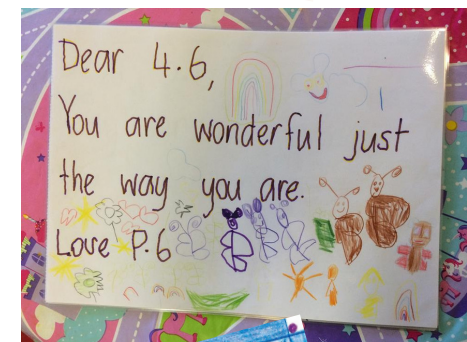 Dear 4.6,
You are wonderful just
the way you are.
Love P.6